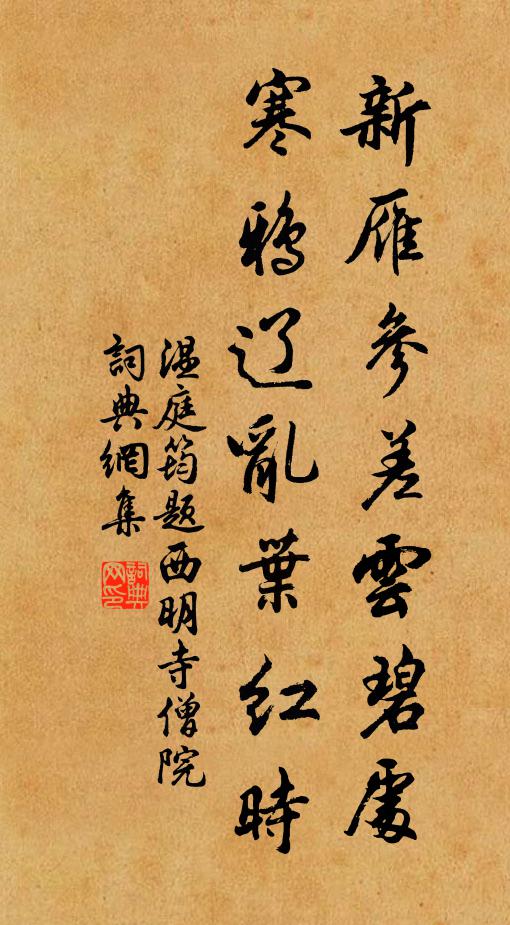 新雁參差雲碧處
寒鴉辽亂葉紅時
温庭筠題西明寺僧院
詞典網集
詞典网印